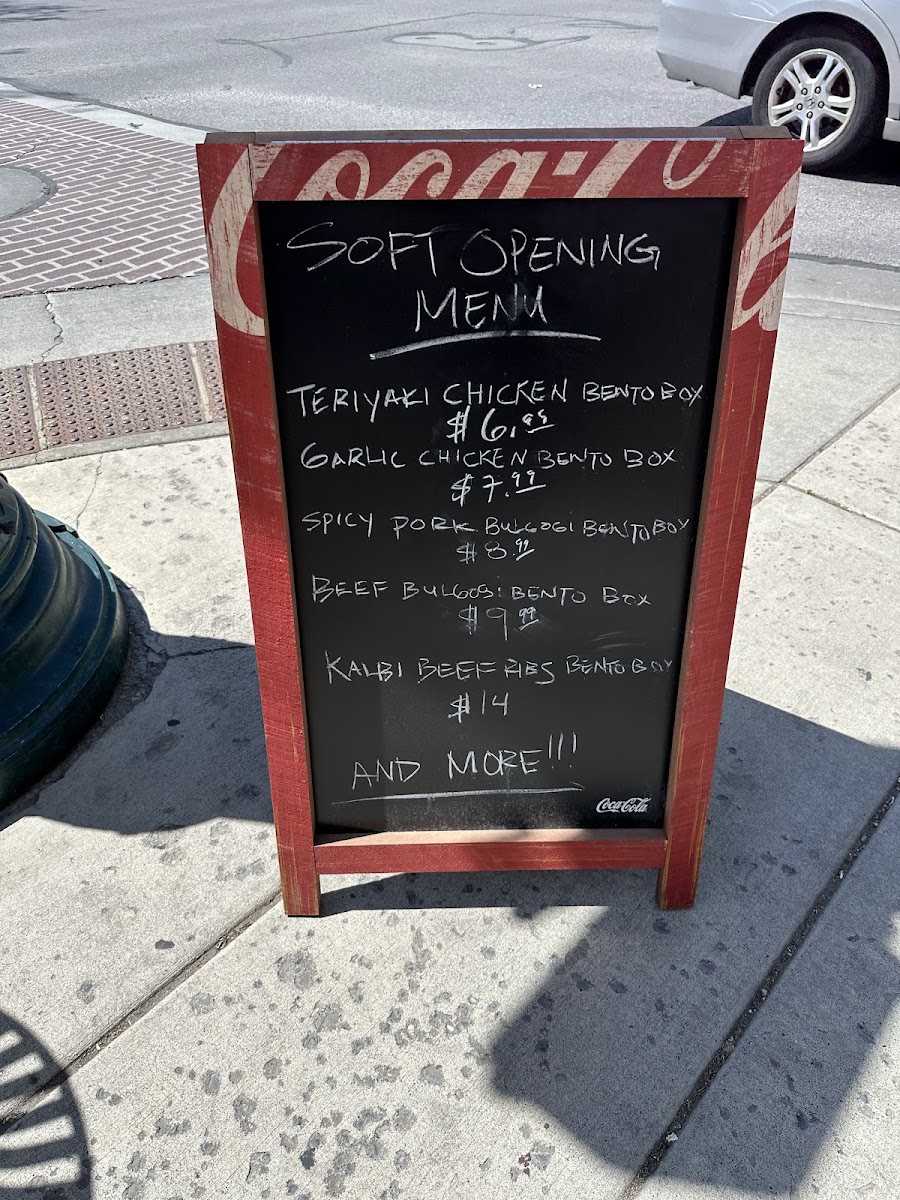 Coca-Co
SOFT OPENING
MENU
TERIYAKI CHICKEN BENTO BOX
$6.99
GARLIC CHICKEN BENTO BOX
$7.99
SPICY PORK BULGOGI BENTO BOX
$8.99
BEEF BULGOGI BENTO BOX
$9.99
KALBI BEEF RIBS BENTO BOX
$14
AND MORE!!!
Coca-Cola